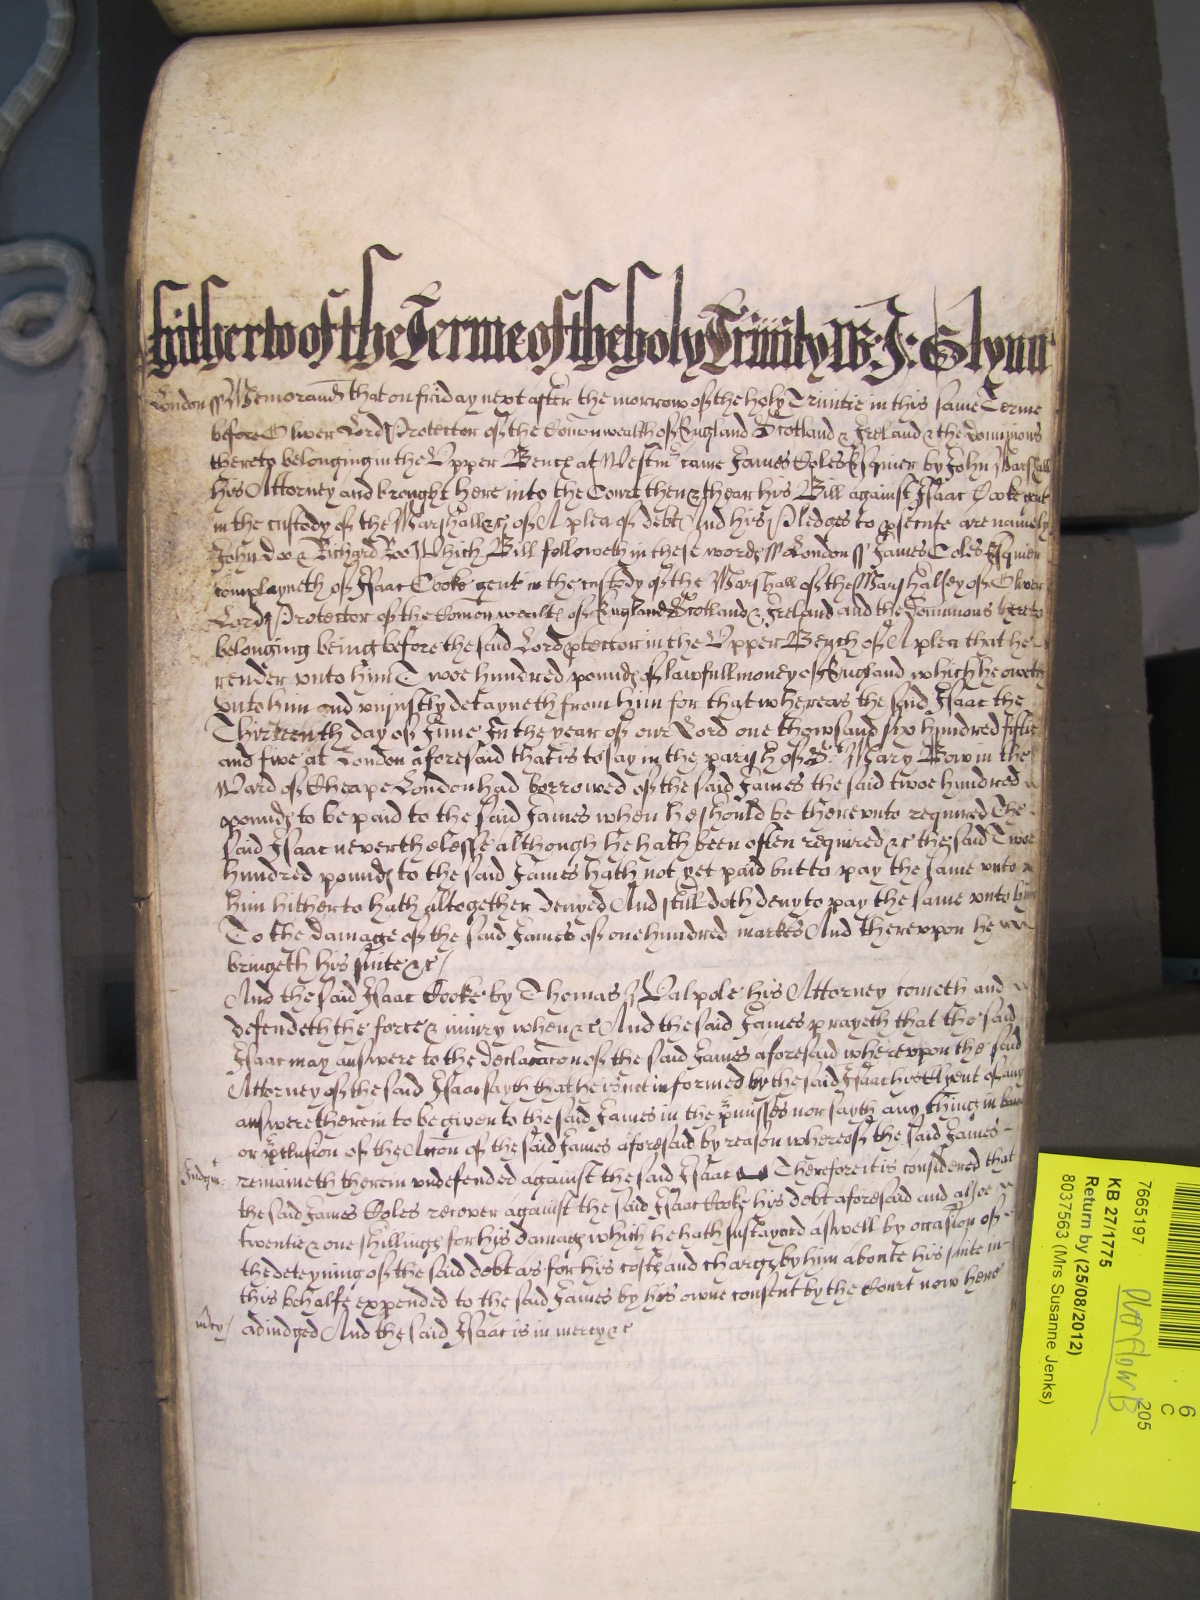 hitherto of the Terme of the holy Trinity W: J: Glynn
London ss Memorand that on friday next after the morrow of the holy Trinitie in this same Terme
before Oliver Lord Protector of the Comonwealth of England Scotland & Ireland & the dominions
thereto belonging in the Upper Bench at Westmr came James Coles Esquier by John Marshall
his Attorney and brought here into the Court then & there his Bill against Isaac Cooke gent
in the custody of the Marshall &c of A plea of debt And his Pledges to psecute are namely
John Doo & Richard Roo Which Bill followeth in these words ss London ss James Coles Esquier
complayneth of Isaac Cooke gent in the custody of the Marshall of the Marshallsey of Oliver
Lord Protector of the Comonwealth of England Scotland & Ireland and the Dominions thereto
belonging being before the said Lord ptector in the Upper Bench of A plea that he
render unto him Twoe hundred pounds of lawfull money of England which he oweth
unto him and unjustly detayneth from him for that whereas the said Isaac the
Thirteenth day of June In the year of our Lord one thowsand six hundred fiftie
and five at London aforesaid that is to say in the parish of St Mary Bow in the
Ward of Cheape London had borrowed of the said James the said twoe hundred
pounds to be paid to the said James when he should be thereunto required The
said Isaac neverthelesse although he hath been often required &c the said Twoe
hundred pounds to the said James hath not yet paid but to pay the same unto
him hitherto hath altogether denyed And still doth deny to pay the same unto him
To the damage of the said James of one hundred markes And thereupon he
bringeth his suite &c
And the said Isaac Cooke by Thomas Walpole his Attorney cometh and
defendeth the force & injury when &c And the said James prayeth that the said
Isaac may answere to the declaracon of the said James aforesaid whereupon the said
Attorney of the said Isaac sayth that he is not informed by the said Isaac his Clyent of any
answere therein to be given to the said James in the pmisses nor sayth any thing in barr
or pclusion of the Accon of the said James aforesaid by reason whereof the said James
Judgmt: remaineth therein undefended against the said Isaac Therefore it is considered that
the said James Coles recover against the said Isaac Cooke his debt aforesaid and alsoe
twentie & one shillings for his damages which he hath sustayned aswell by occasion of
the deteyning of the said debt as for his costs and charges by him aboute his suite in
this behalfe expended to the said James by his owne consent by the Court now here
mcy adiudged And the said Isaac is in mercy &c
7665197
KB 27/1775
Return by (25/08/2012)
8037563 (Mrs Susanne Jenks)
6
C
205